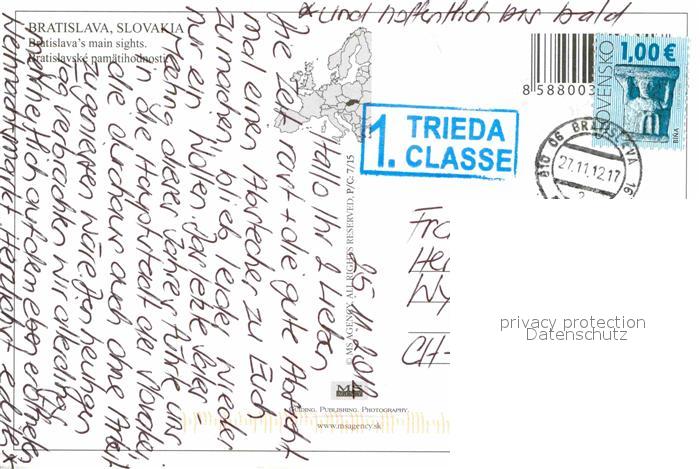 * und hoffentlich bis bald
BRATISLAVA, SLOVAKIA
Bratislava's main sights.
Bratislavské pamätihodnosti
25. 11. 201
Hallo Ihr 2 Lieben
die Zeit rast + die gute Absicht
mal einen Abstecher zu Euch
zu machen blieb leider wieder
nur ein Wollen. Das letzte
dieses Jahres führte uns
in die Hauptstadt der Slowakei
die durchaus auch ohne
zu geniessen wäre. Den heutigen
Tag verbrachten wir allerdings
auf dem eben eröffneten
Weihnachtsmarkt. Herzlichst *
© MS AGENCY. ALL RIGHTS RESERVED. P/C: 7/15
MS
AGENCY
GUIDING. PUBLISHING. PHOTOGRAPHY.
www.msagency.sk
8 588003
SLOVENSKO
1,00 €
BÍŇA
1. TRIEDA
CLASSE
810 06 BRATISLAVA 16
27.11.12.17
2
Fra
He
Wy
CH-
privacy protection
Datenschutz